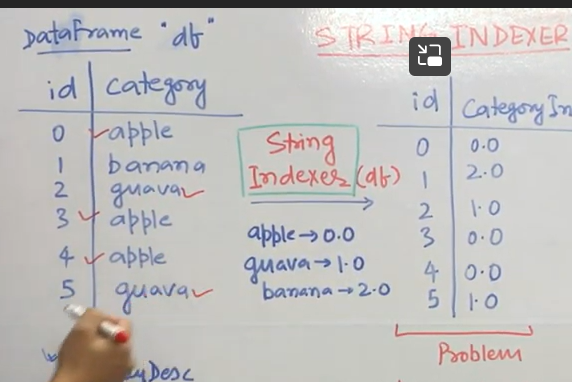 DataFrame "df"
id category
0 apple
1 banana
2 guava
3 apple
4 apple
5 guava
STRING INDEXER
String
Indexer (df)
apple→0.0
guava→1.0
banana→2.0
id Category In
0 0.0
1 2.0
2 1.0
3 0.0
4 0.0
5 1.0
Problem
yDesc